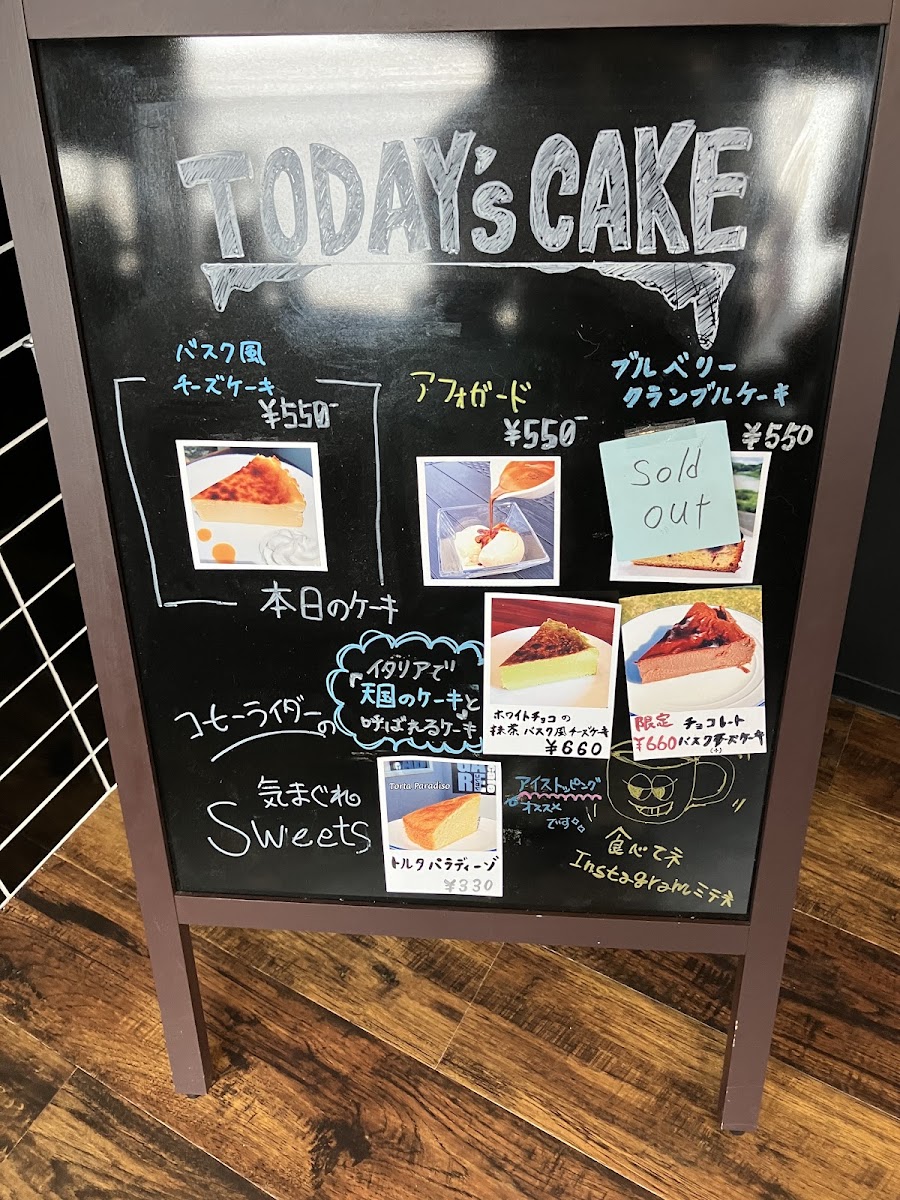 TODAY's CAKE
バスク風
チーズケーキ
¥550-
アフォガード
¥550-
ブルーベリー
クランブルケーキ
¥550
Sold
out
本日のケーキ
イタリアで
「天国のケーキ」と
呼ばれるケーキ
ホワイトチョコの
抹茶バスク風チーズケーキ
¥660
限定 チョコレート
¥660 バスクチーズケーキ
コーヒーライダーの
気まぐれ
Sweets
Torta Paradiso
トルタパラディーゾ
¥330
アイストッピング
オススメ
です。
食べてネ
Instagramミテネ